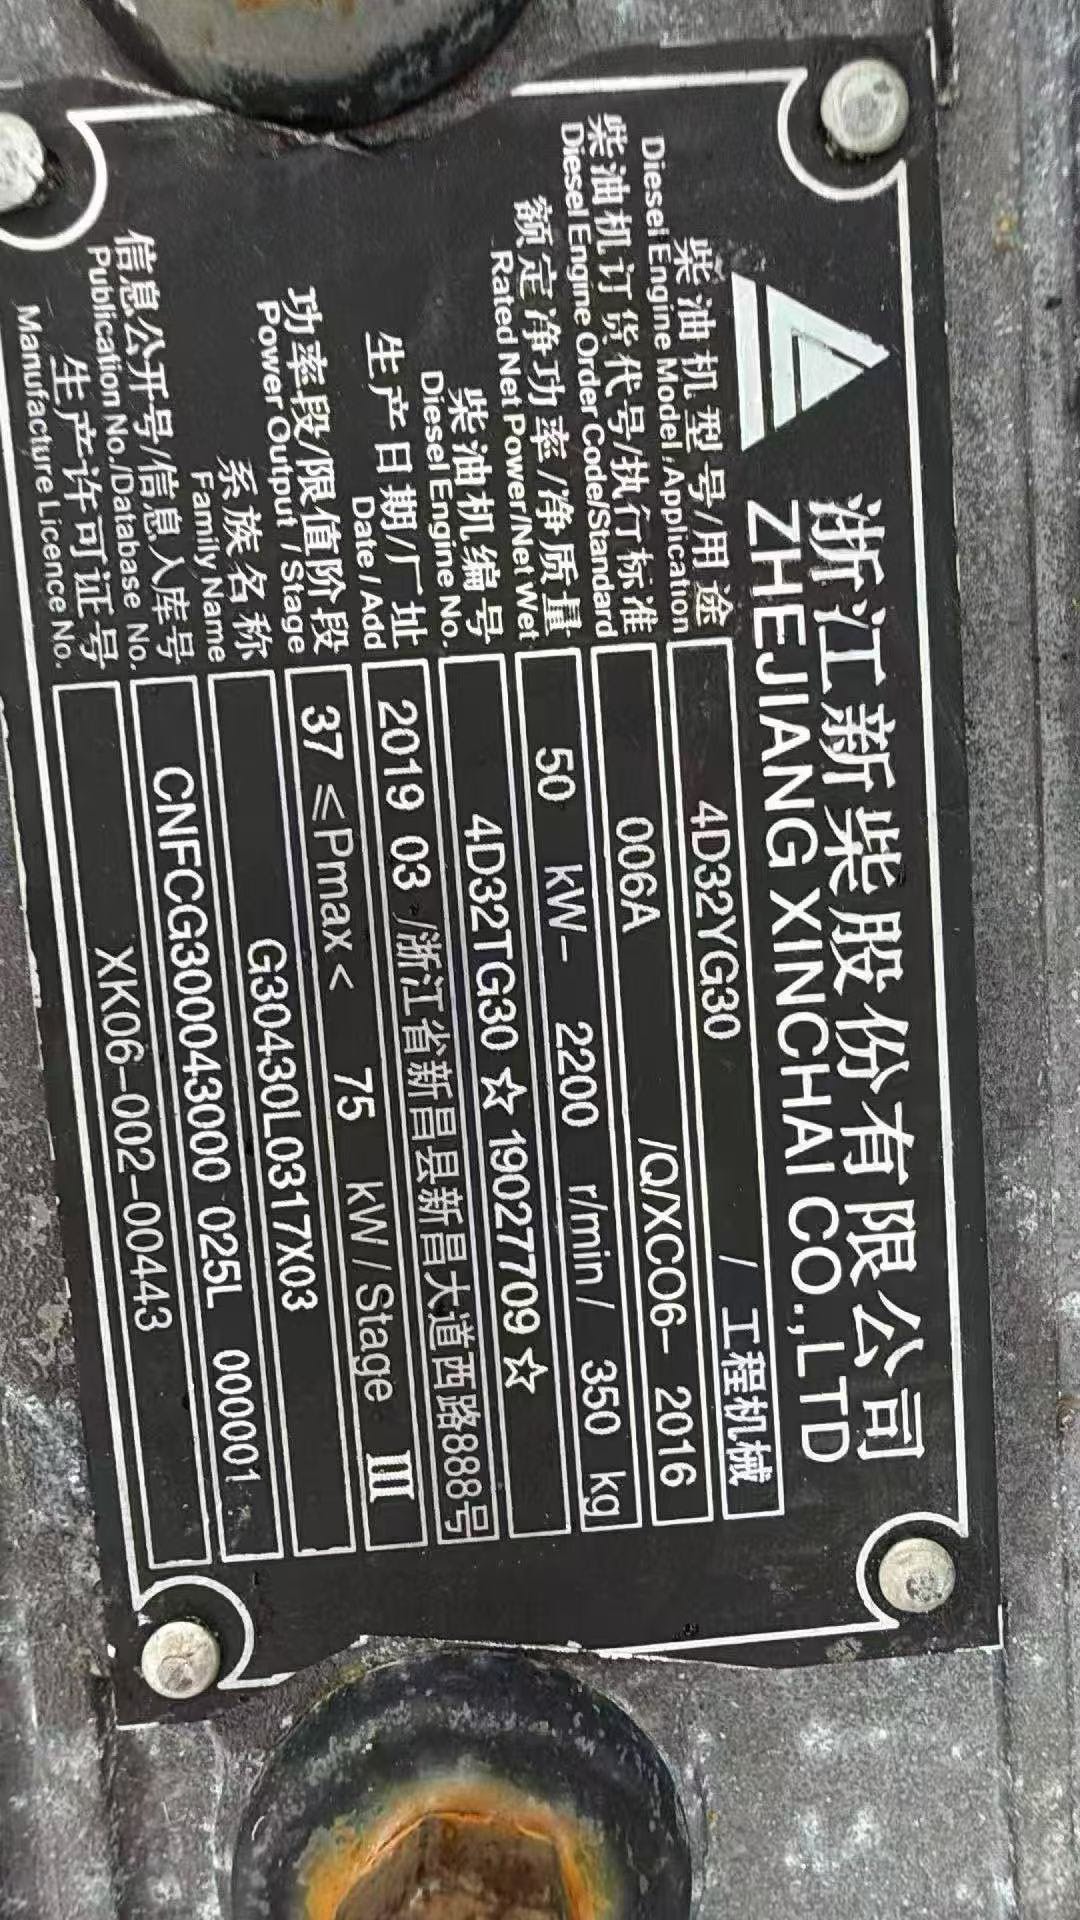 浙江新柴股份有限公司
ZHEJIANG XINCHAI CO.,LTD
柴油机型号/用途 4D32YG30 / 工程机械
Diesel Engine Model /Application
柴油机订货代号/执行标准 006A /Q/XC06- 2016
Diesel Engine Order Code/Standard
额定净功率/净质量 50 kW- 2200 r/min/ 350 kg
Rated Net Power/Net Wet
柴油机编号 4D32TG30 ☆ 19027709 ☆
Diesel Engine No.
生产日期/厂址 2019 03 /浙江省新昌县新昌大道西路888号
Date/Add
功率段/限值阶段 37 ≤Pmax< 75 kW/Stage III
Power Output / Stage
系族名称 G30430L0317X03
Family Name
信息公开号/信息入库号 CNFCG300043000 025L 000001
Publication No./Database No.
生产许可证号 XK06-002-00443
Manufacture Licence No.